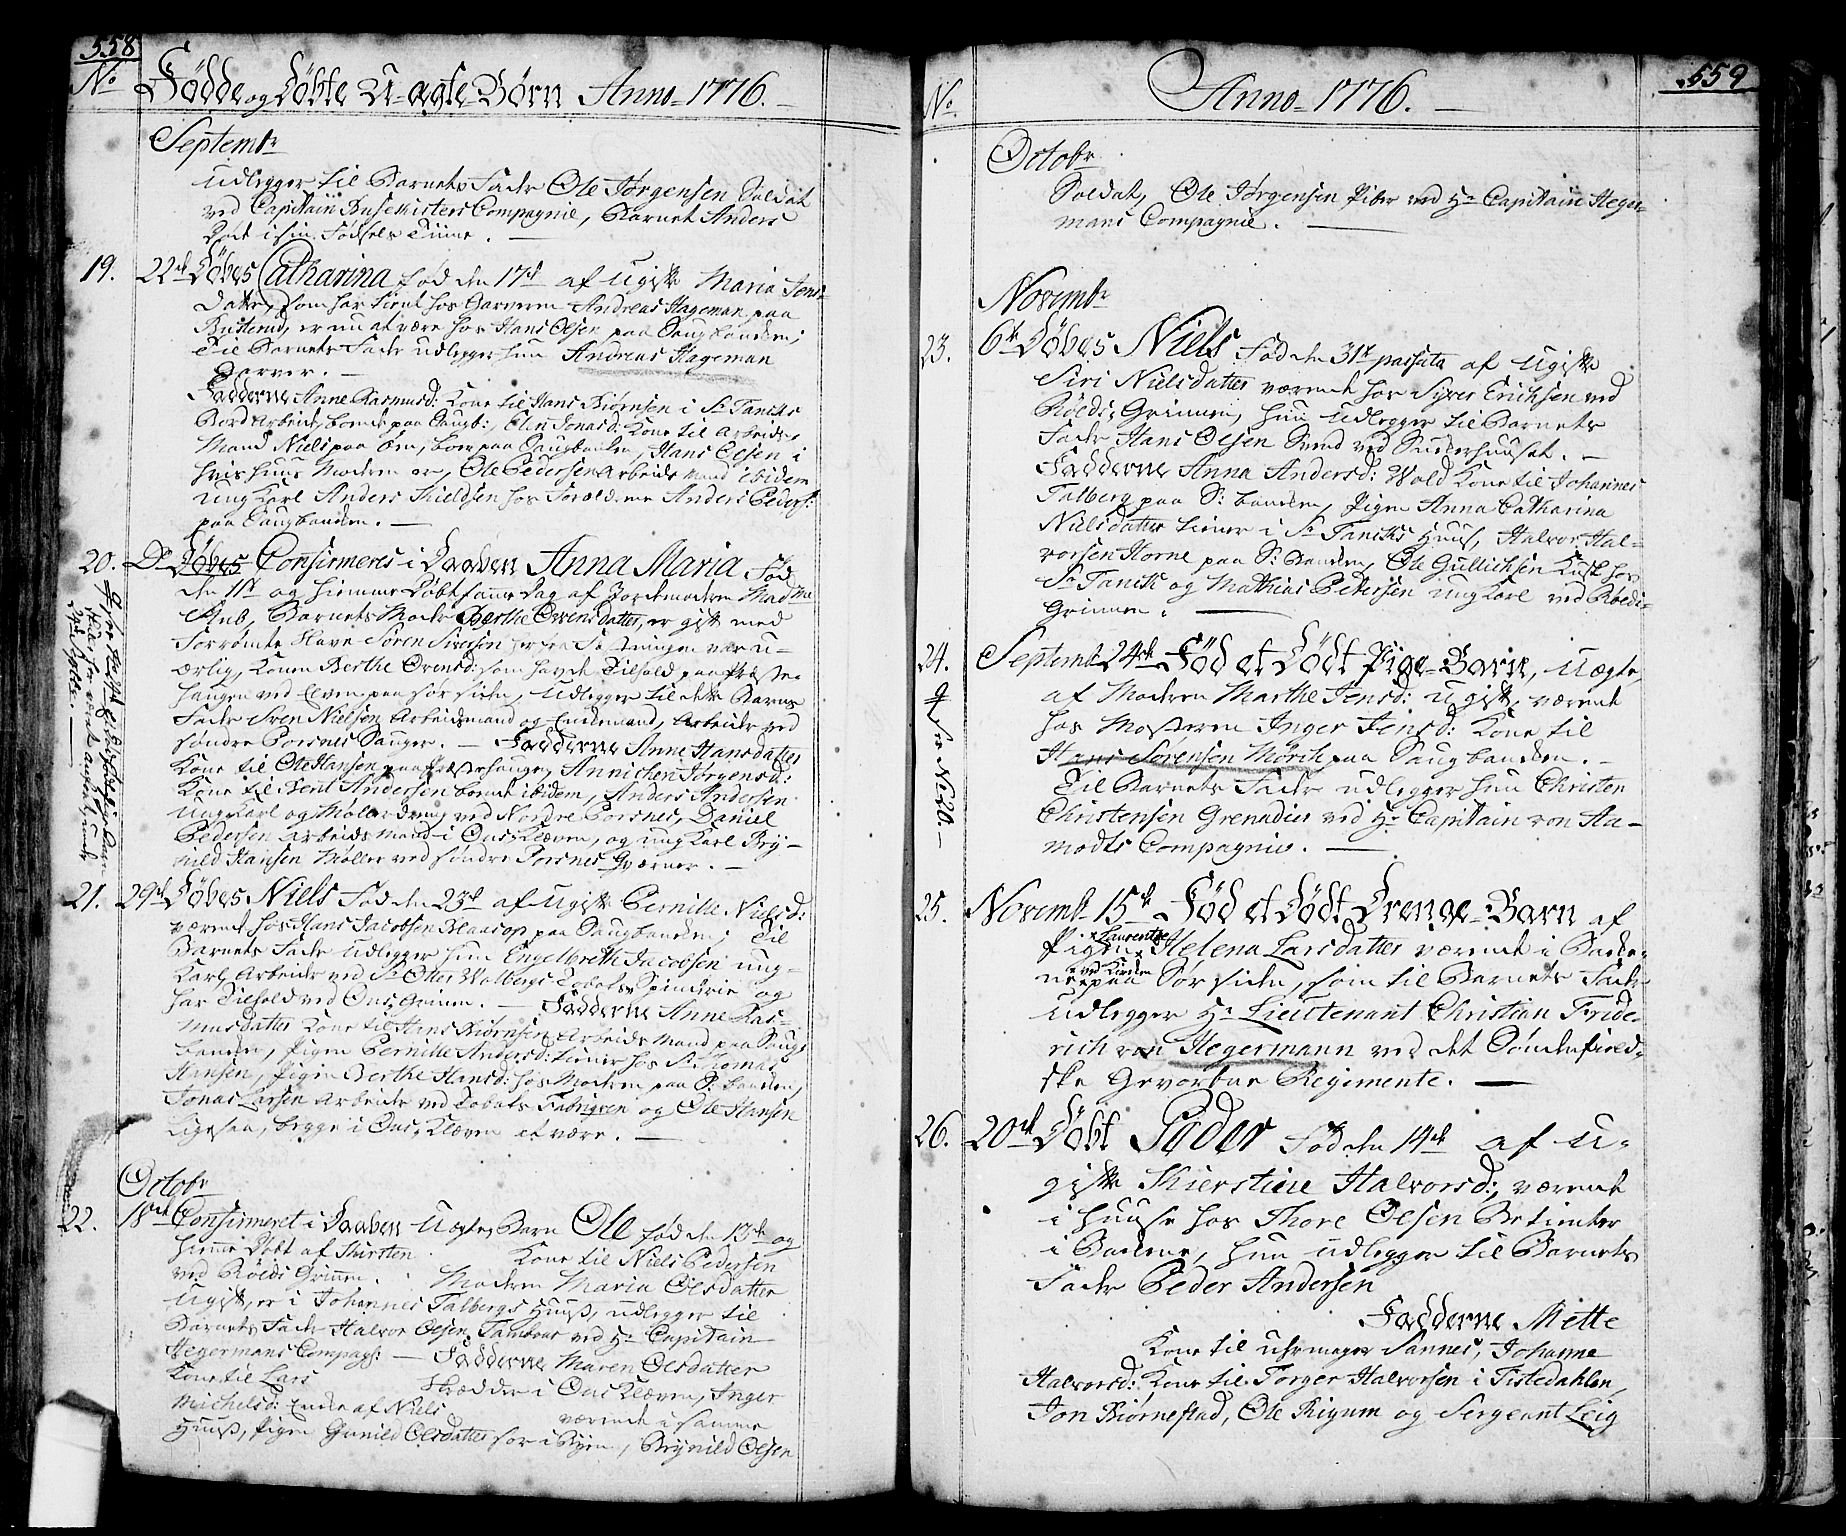 558
No
Fødde og Døbte U-ægte Børn Anno 1776.
Septembr
udlegger til Barnets Fader Ole Jørgensen Soldat
ved Capitain Compagnie, Barnet Anders
Død i sin Fødsels Time.
19. 22de Døbes Catharina fød den 17de af ugifte Maria Jens-
Datter, som har tient hos Garveren Andreas Hageman paa
Busterud, er nu at være hos Hans Olsen paa Saugbanden;
Til Barnets Fader udlegger hun Andreas Hageman
Garver.
Fadderne Anne Rasmusd: Kone til Hans Biørnsen i Sr Tanks
Bord Arbeide, boende paa Saugb:, Elin Jonasd: Kone til Arbeids-
Mand Niels paa Øen, boer paa Saugbanden, Hans Olsen i
hvis Huus Moderen er, Ole Pedersen Arbeids Mand ibidem
ung Karl Anders Kieldsen hos Forældrene Anders Peders:
paa Saugbanden.
20. Do Døbes Confirmeres i Daaben Anna Maria Fød
den 1st og hiemme Døbt samme Dag af Jordemoderen Mad me
Stub, Barnets Moder Berthe Svensdatter, er gift med
Forrømte Slave Søren Siversen her fra Fæstningen være u-
ærlig, Konen Berthe Svensd: som havde Tilhold paa Præste
haugen ved Elven paa Sør siden, udlegger til dette Barns
Fader Sven Nielsen Arbeidsmand og Enckemand, Arbeider ved
Søndre Porsnes Sauger. Fadderne Anne Hansdatter
Kone til Ole Hansen paa Præstehaugen, Annichen Jørgensd:
Kone til Bent Andersen boende ibidem, Anders Andersen
ung Karl og Møllerdreng ved Nordre Porsnes, Daniel
Pedersen Arbeids Mand i Ous Kleven, og ung Karl Bry-
nild Hansen Møller ved søndre Porsnes Qværner.
21. 29de Døbes Niels Fød den 23de af ugifte Pernille Nielsd:
værende hos Hans Jacobsen Klaasop paa Saugbanden; Til
Barnets Fader udlegger hun Engelbreth Jacobsen ung-
Karl Arbeider ved Sr Otter Wolbergs Tobaks Spinderie og
har Tilhold ved Ous Grinen. Fadderne Anne Ras-
musdatter Kone til Hans Biørnsen Arbeids Mand paa Saug-
banden, Pigen Pernille Andersd: tiener hos Sr Thomas
Hansen, Pigen Berthe Hansd: hos Moderen paa S: banden,
Jonas Larsen Arbeider ved Tobaks Fabriqven og Ole Hansen
Ligesaa, begge i Ous Kleven at være.
Octobr
22. 18de Confirmeret i Daaben Uægte Barn Ole fød den 13de og
hiemme Døbt af Kirsten Kone til Niels Pedersen
ved Røeds Grinen. Moderen Maria Olsdatter
ugift, er i Johannes Talbergs Huus, udlegger til
Barnets Fader Halvor Olsen Tambour ved Hr Capitain
Hegermans Compags: Fadderne Maren Olsdatter
Kone til Lars Skrædder i Ous Kleven, Inger
Michelsd: Encke af Niels værende i samme
Huus, Pigen Gunild Olsdatter for i Byen, Brynild Olsen
559
No.
Anno 1776.
Octobr
Soldat, Ole Jørgensen Piber ved Hr Capitain Heger-
mans Compagnie.
Novembr
23. 6te Døbes Niels Fød den 31te passato af ugifte
Siri Nielsdatter værende hos Syver Erichsen ved
Røeds Grinnen, hun udlegger til Barnets
Fader Hans Olsen Svend ved Sukkerhuuset.
Fadderne Anna Andersd: Wold Kone til Johannes
Talberg paa S: banden, Pigen Anna Catharina
Nielsdatter tiener i Sr Tanks Huus, Halvor Hal-
vorsen Horne paa S: banden, Ole Gullichsen Kusk hos
Sr Tank og Mathias Pedersen ung Karl ved Røeds-
Grinnen.
24. Septembr 24de Fød et Dødt Pige-Barn, uægte,
af Moderen Marthe Jensd: ugift, værende
hos Mosteren Inger Jensd: Kone til
Hans Sørensen Mørch paa Saugbanden.
Til Barnets Fader udlegger hun Christen
Christensen Grenadier ved Hr Capitain von Aa-
modts Compagnie.
25. Novembr 15de Fød et Dødt Drenge-Barn af
Laurentze
Pigen Helena Larsdatter værende i Bade-
ved Kirken
ne paa Sør siden, som til Barnets Fader
udlegger Hr Lieutenant Christian Fride-
rich von Hegermann ved det Søndenfield-
ske Gevorbne Regimente.
26. 20de Døbt Peder Fød den 14de af u-
gifte Kierstine Halvorsd:, værende
i Huuse hos Thore Olsen Betienter
i Baderne, hun udlegger til Barnets
Fader Peder Andersen
Fadderne Mette
Kone til Uhrmager Sannes, Johanne
Halvorsd: Kone til Torger Halvorsen i Tistedahlen,
Jon Biørnestad, Ole Rigum og Sergeant Leig